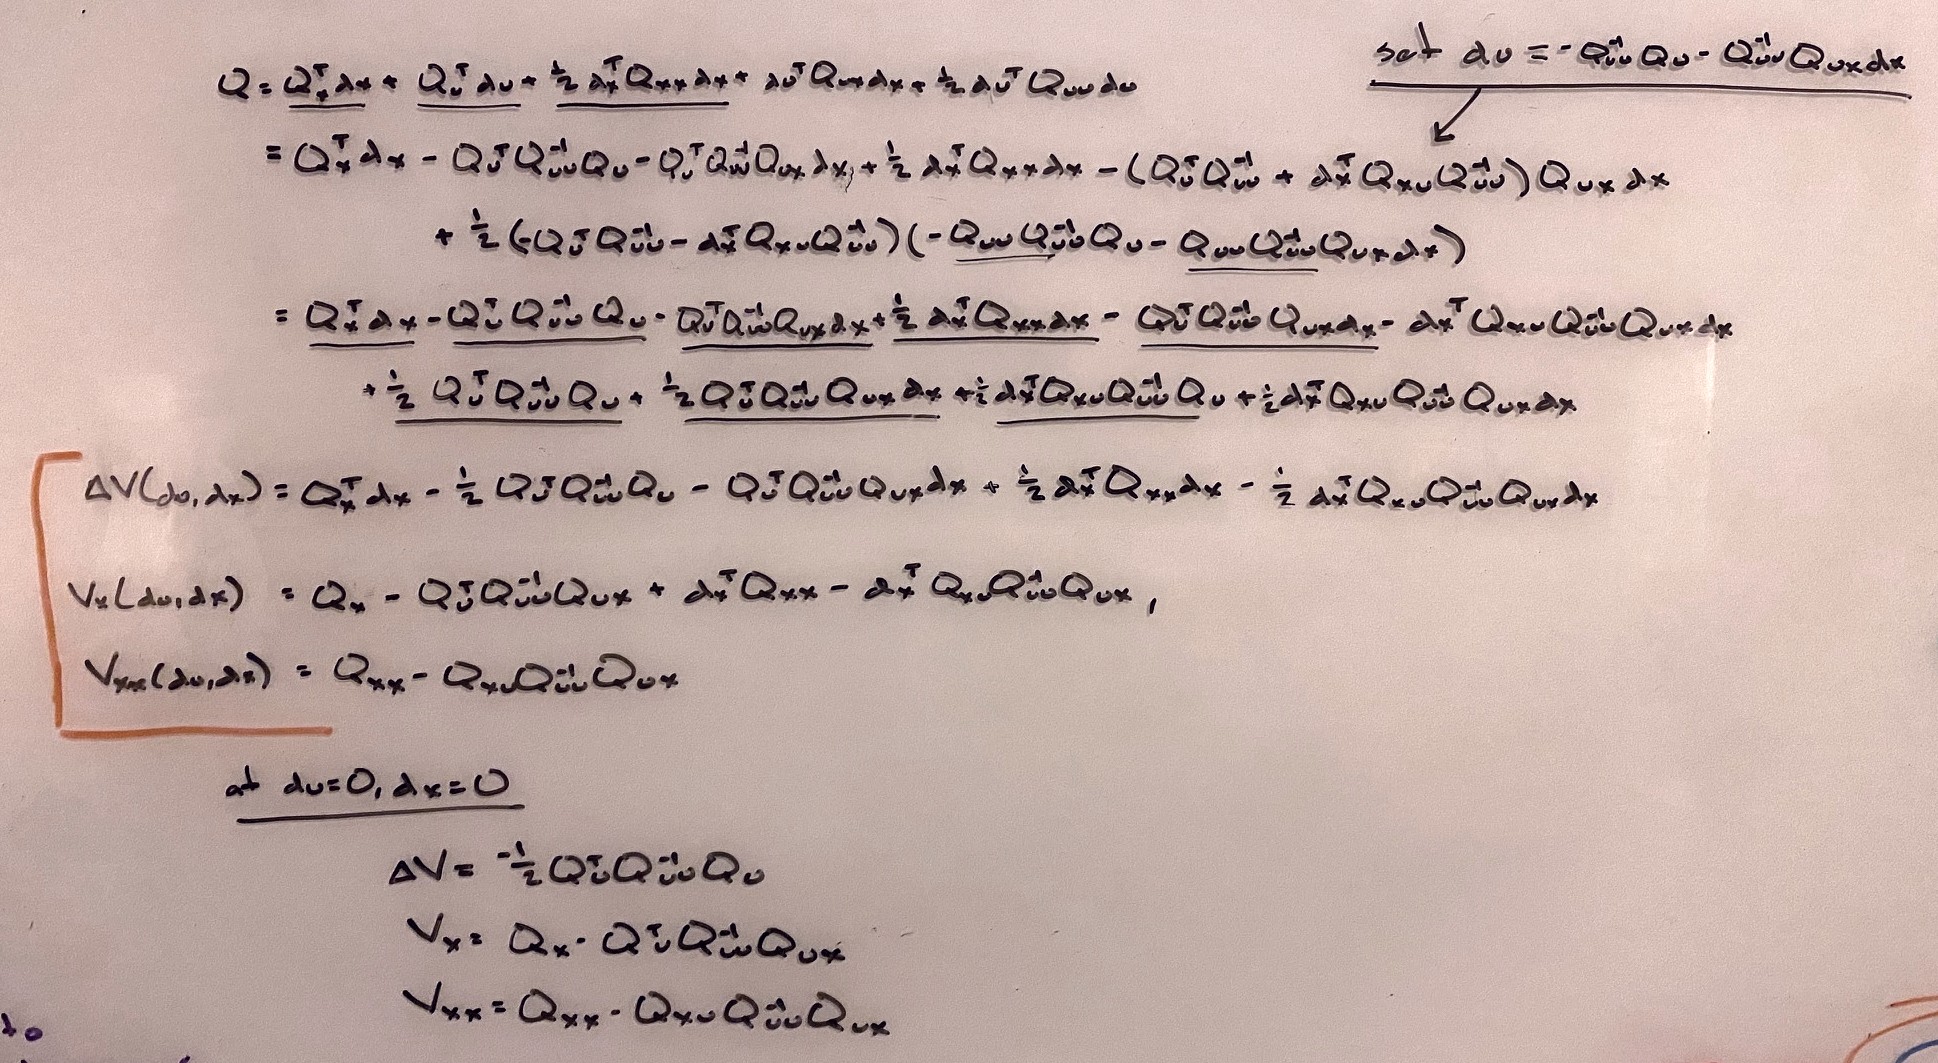 set du = -Q_uu^-1 Q_u - Q_uu^-1 Q_ux dx
Q = Q_x^T dx + Q_u^T du + 1/2 dx^T Q_xx dx + du^T Q_ux dx + 1/2 du^T Q_uu du
= Q_x^T dx - Q_u^T Q_uu^-1 Q_u - Q_u^T Q_uu^-1 Q_ux dx + 1/2 dx^T Q_xx dx - (Q_u^T Q_uu^-1 + dx^T Q_xu Q_uu^-1) Q_ux dx
+ 1/2 (-Q_u^T Q_uu^-1 - dx^T Q_xu Q_uu^-1)(-Q_uu Q_uu^-1 Q_u - Q_uu Q_uu^-1 Q_ux dx)
= Q_x^T dx - Q_u^T Q_uu^-1 Q_u - Q_u^T Q_uu^-1 Q_ux dx + 1/2 dx^T Q_xx dx - Q_u^T Q_uu^-1 Q_ux dx - dx^T Q_xu Q_uu^-1 Q_ux dx
+ 1/2 Q_u^T Q_uu^-1 Q_u + 1/2 Q_u^T Q_uu^-1 Q_ux dx + 1/2 dx^T Q_xu Q_uu^-1 Q_u + 1/2 dx^T Q_xu Q_uu^-1 Q_ux dx
ΔV(du, dx) = Q_x^T dx - 1/2 Q_u^T Q_uu^-1 Q_u - Q_u^T Q_uu^-1 Q_ux dx + 1/2 dx^T Q_xx dx - 1/2 dx^T Q_xu Q_uu^-1 Q_ux dx
V_x(du, dx) = Q_x - Q_u^T Q_uu^-1 Q_ux + dx^T Q_xx - dx^T Q_xu Q_uu^-1 Q_ux,
V_xx(du, dx) = Q_xx - Q_xu Q_uu^-1 Q_ux
at du=0, dx=0
ΔV = -1/2 Q_u^T Q_uu^-1 Q_u
V_x = Q_x - Q_u^T Q_uu^-1 Q_ux
V_xx = Q_xx - Q_xu Q_uu^-1 Q_ux